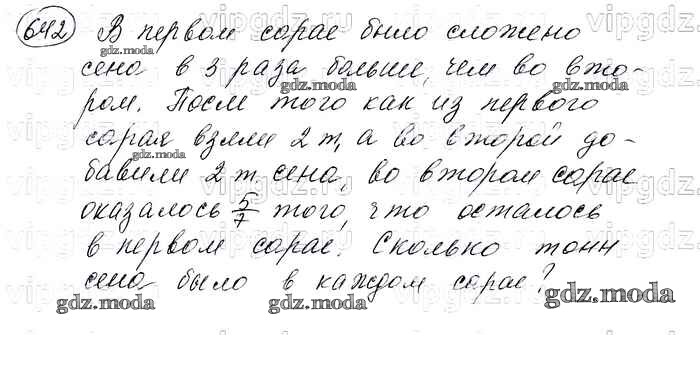 642 В первом сарае было сложено
сена в 3 раза больше, чем во вто-
ром. После того как из первого
сарая взяли 2 т, а во второй до-
бавили 2 т сена, во втором сарае
оказалось 5/7 того, что осталось
в первом сарае. Сколько тонн
сена было в каждом сарае?